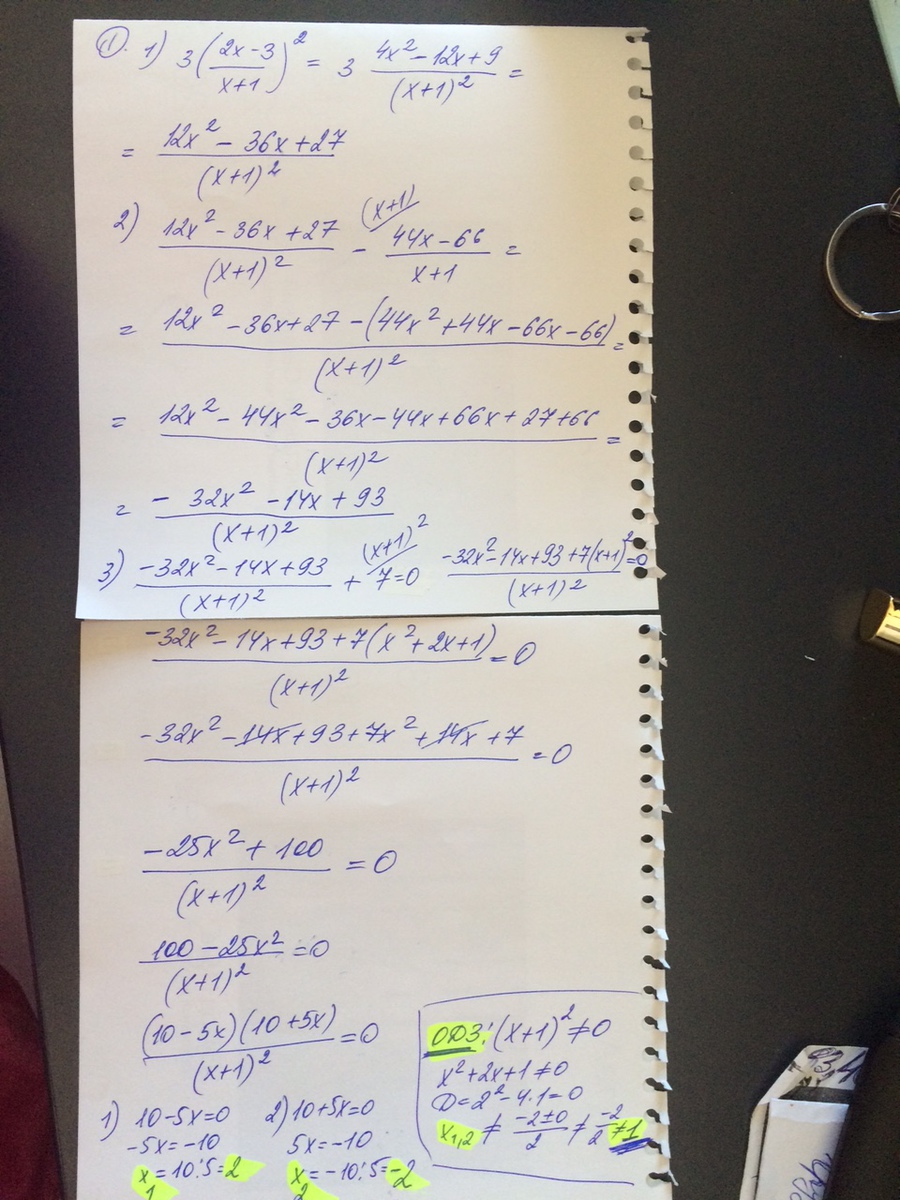 ①. 1) 3((2x-3)/(x+1))² = 3 (4x²-12x+9)/(x+1)² =
= (12x²-36x+27)/(x+1)²
2) (12x²-36x+27)/(x+1)² - (x+1)/ (44x-66)/(x+1) =
= (12x²-36x+27-(44x²+44x-66x-66))/(x+1)² =
= (12x²-44x²-36x-44x+66x+27+66)/(x+1)² =
= (-32x²-14x+93)/(x+1)²
3) (-32x²-14x+93)/(x+1)² + (x+1)²/ 7=0 (-32x²-14x+93+7(x+1)²)/(x+1)² =0
(-32x²-14x+93+7(x²+2x+1))/(x+1)² = 0
(-32x²-14x+93+7x²+14x+7)/(x+1)² = 0
(-25x²+100)/(x+1)² = 0
(100-25x²)/(x+1)² = 0
((10-5x)(10+5x))/(x+1)² = 0
1) 10-5x=0
-5x=-10
x₁=10:5=2
2) 10+5x=0
5x=-10
x₂=-10:5=-2
ОДЗ: (x+1)²≠0
x²+2x+1≠0
D=2²-4·1=0
x₁,₂ ≠ (-2±0)/2 ≠ -2/2 ≠1